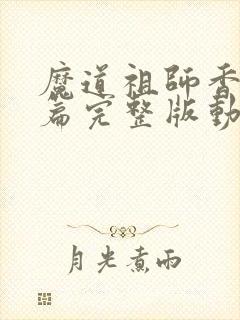 魔道祖師香
篇完整版動
月光煮雨